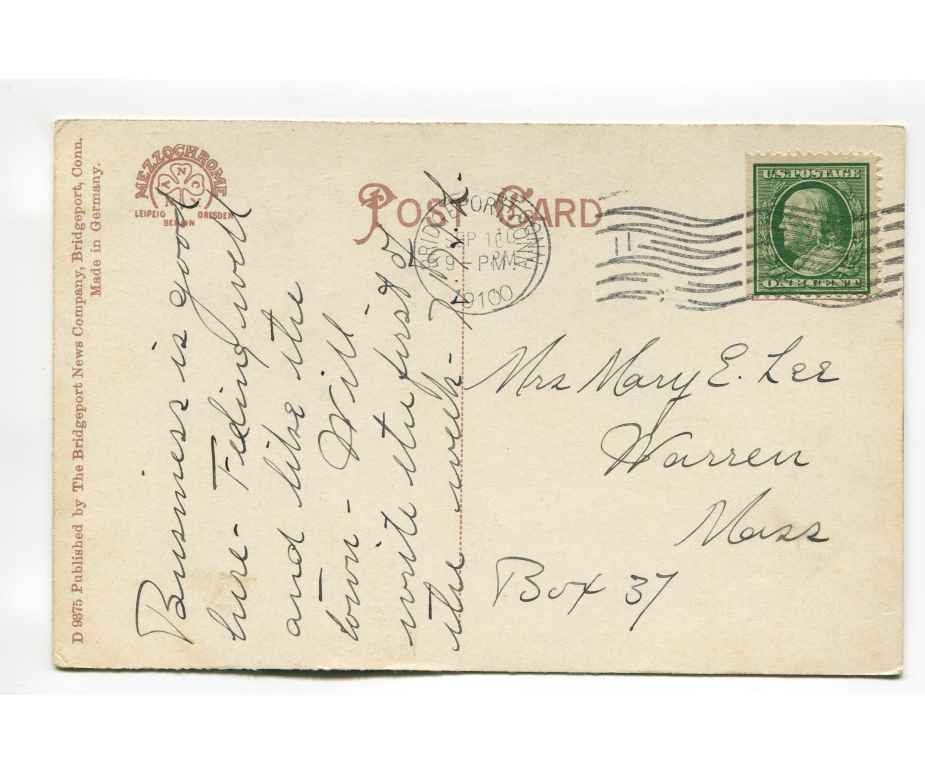 D 9375 Published by The Bridgeport News Company, Bridgeport, Conn.
Made in Germany.
MEZZOCHROME
A N C
LEIPZIG DRESDEN
BERLIN
POST CARD
BRIDGEPORT, CONN.
9-PM
1910
U.S. POSTAGE
ONE CENT
Business is good
here - Feeling well
and like the
town - Will
write the first of
the week -
Mrs Mary E. Lee
Warren
Mass
Box 37